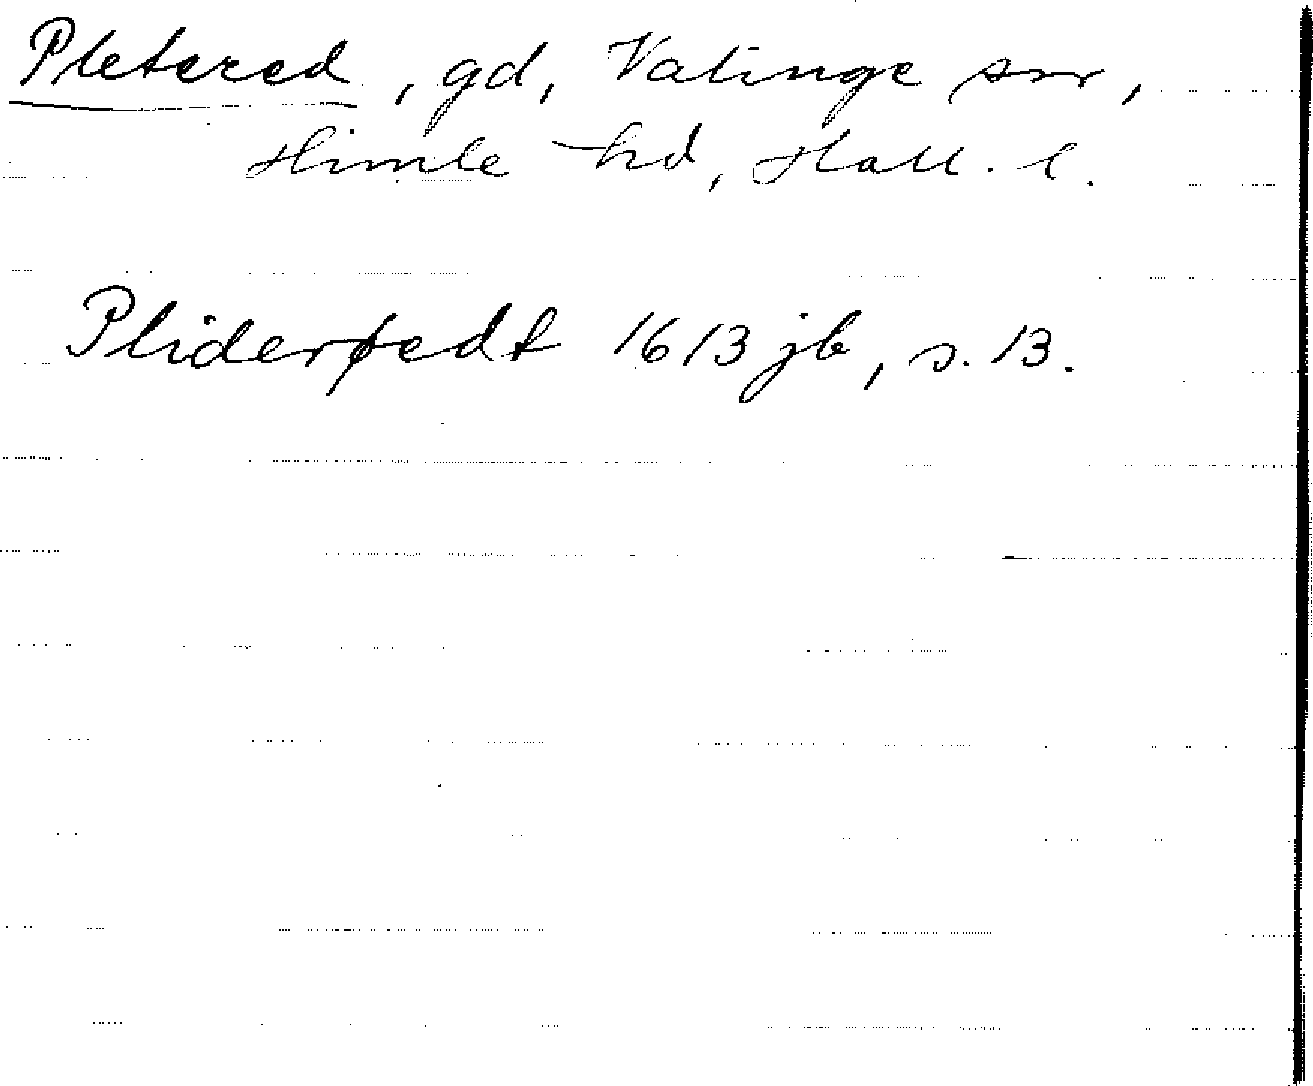 Pletered, gd, Valinge snr,
Himle hd, Hall. l.
Pliderødt 1613 jb, s. 13.